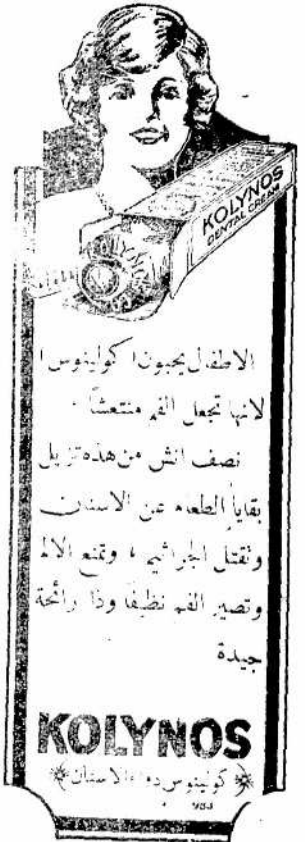 KOLYNOS
DENTAL CREAM
الاطفال يحبون ا كولينوس ا
لانها تجعل الفم منتعشاً .
نصف انش من هذه تزيل
بقايا الطعام عن الاسنان
وتقتل الجراثيم ، وتمنع الالم
وتصير الفم نظيفاً وذا رائحة
جيدة
KOLYNOS
كولينوس دواء الاسنان